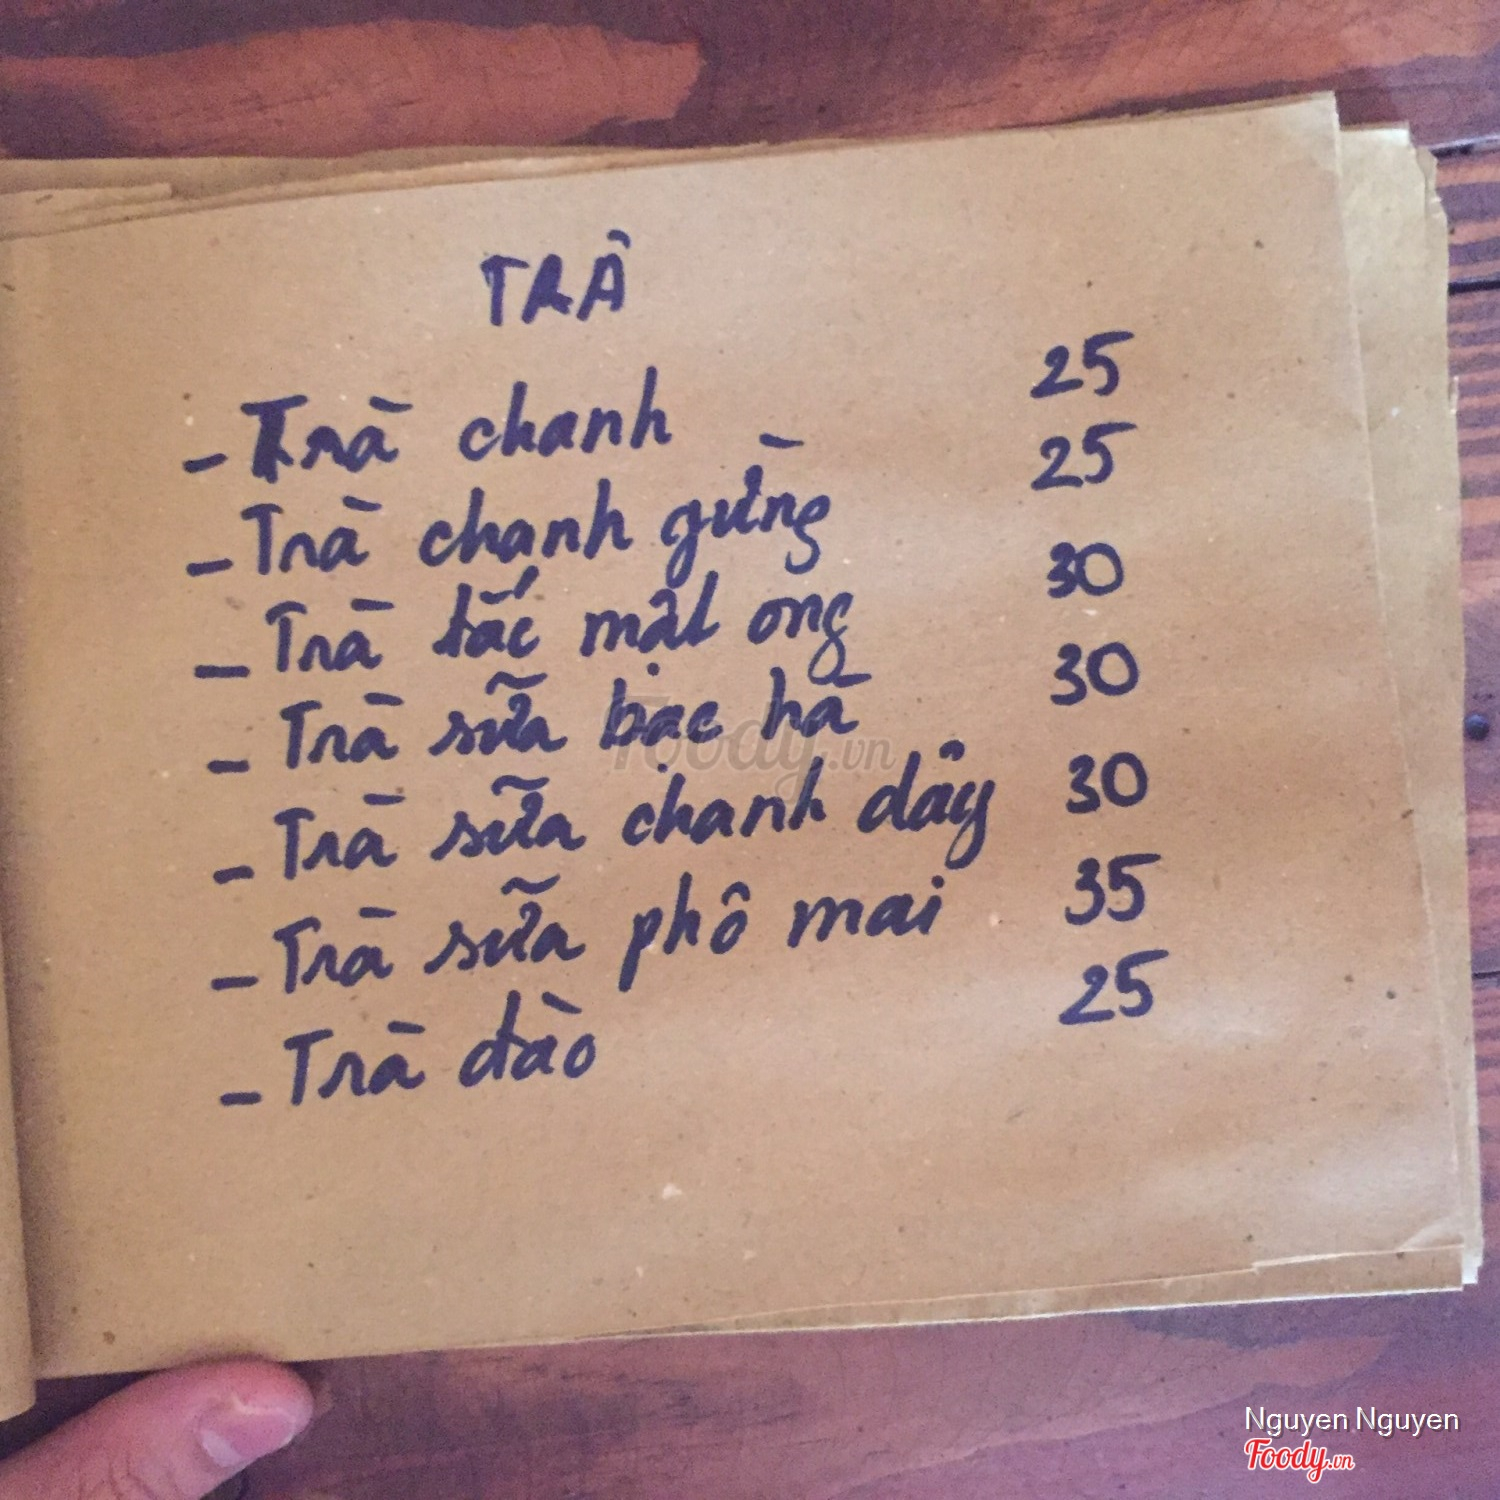 TRÀ
- Trà chanh 25
- Trà chanh gừng 25
- Trà tắc mật ong 30
- Trà sữa bạc hà 30
- Trà sữa chanh dây 30
- Trà sữa phô mai 35
- Trà đào 25
Foody.vn
Nguyen Nguyen
Foody.vn